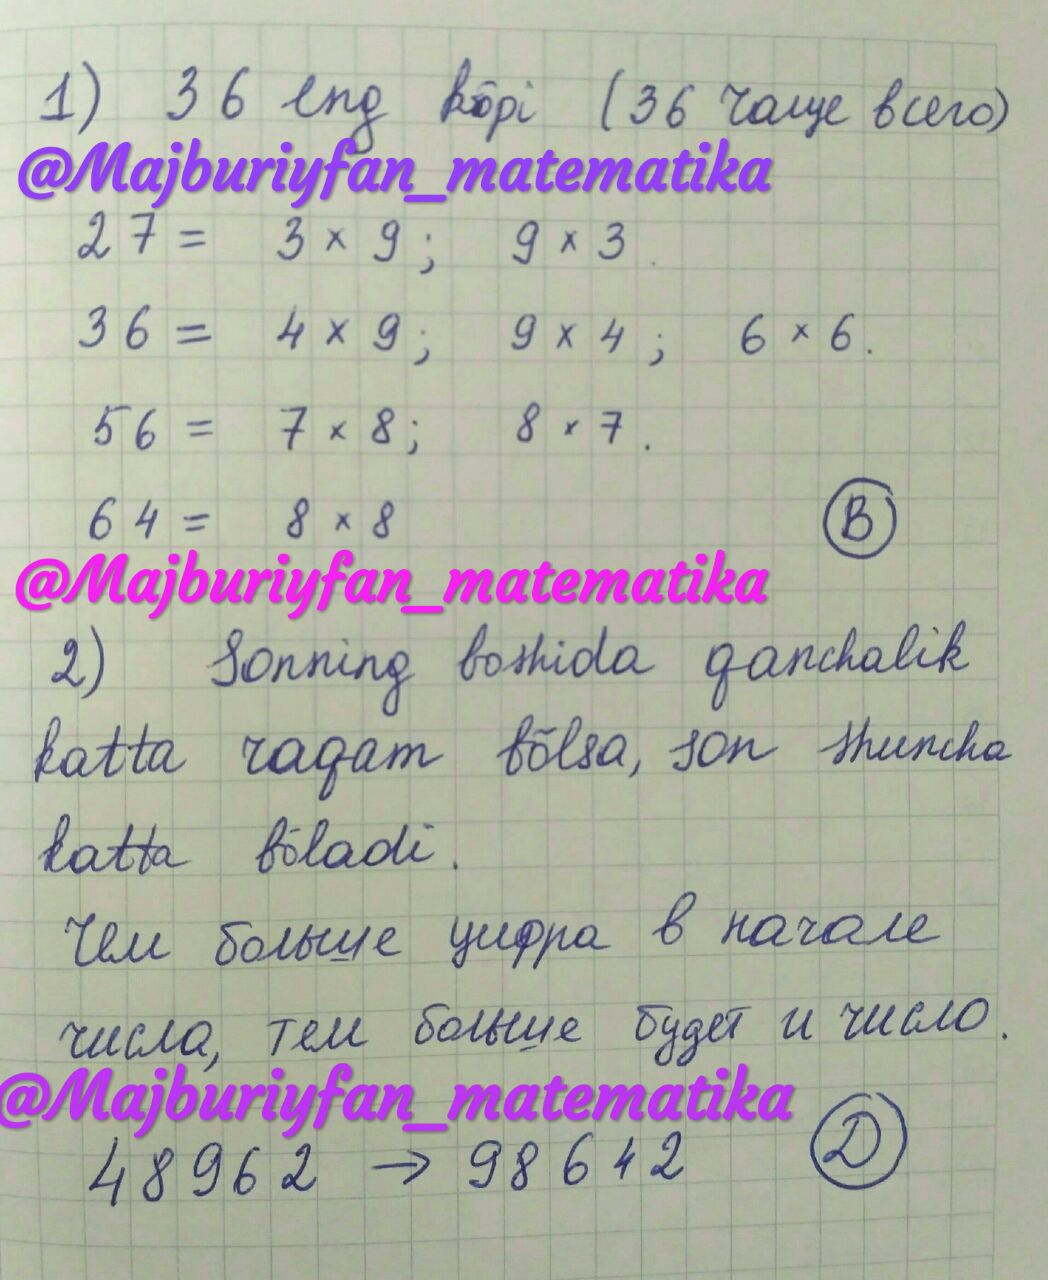 1) 36 eng kōpi (36 чаще всего)
@Majburiyfan_matematika
27 = 3 × 9; 9 × 3.
36 = 4 × 9; 9 × 4; 6 × 6.
56 = 7 × 8; 8 × 7.
64 = 8 × 8 B
@Majburiyfan_matematika
2) Sonning boshida qanchalik
katta raqam bōlsa, son shuncha
katta bōladi.
Чем больше цифра в начале
числа, тем больше будет и число.
@Majburiyfan_matematika
48962 → 98642 D